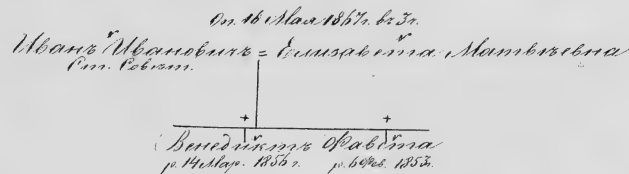 Оп. 16 Мая 1867 г. въ 3 г.
Иванъ Ивановичъ = Елизавета Матвѣевна
Ст. Совѣт.
+ +
Венедиктъ Фавста
р. 14 Мар. 1856 г. р. 6 Фев. 1853 г.